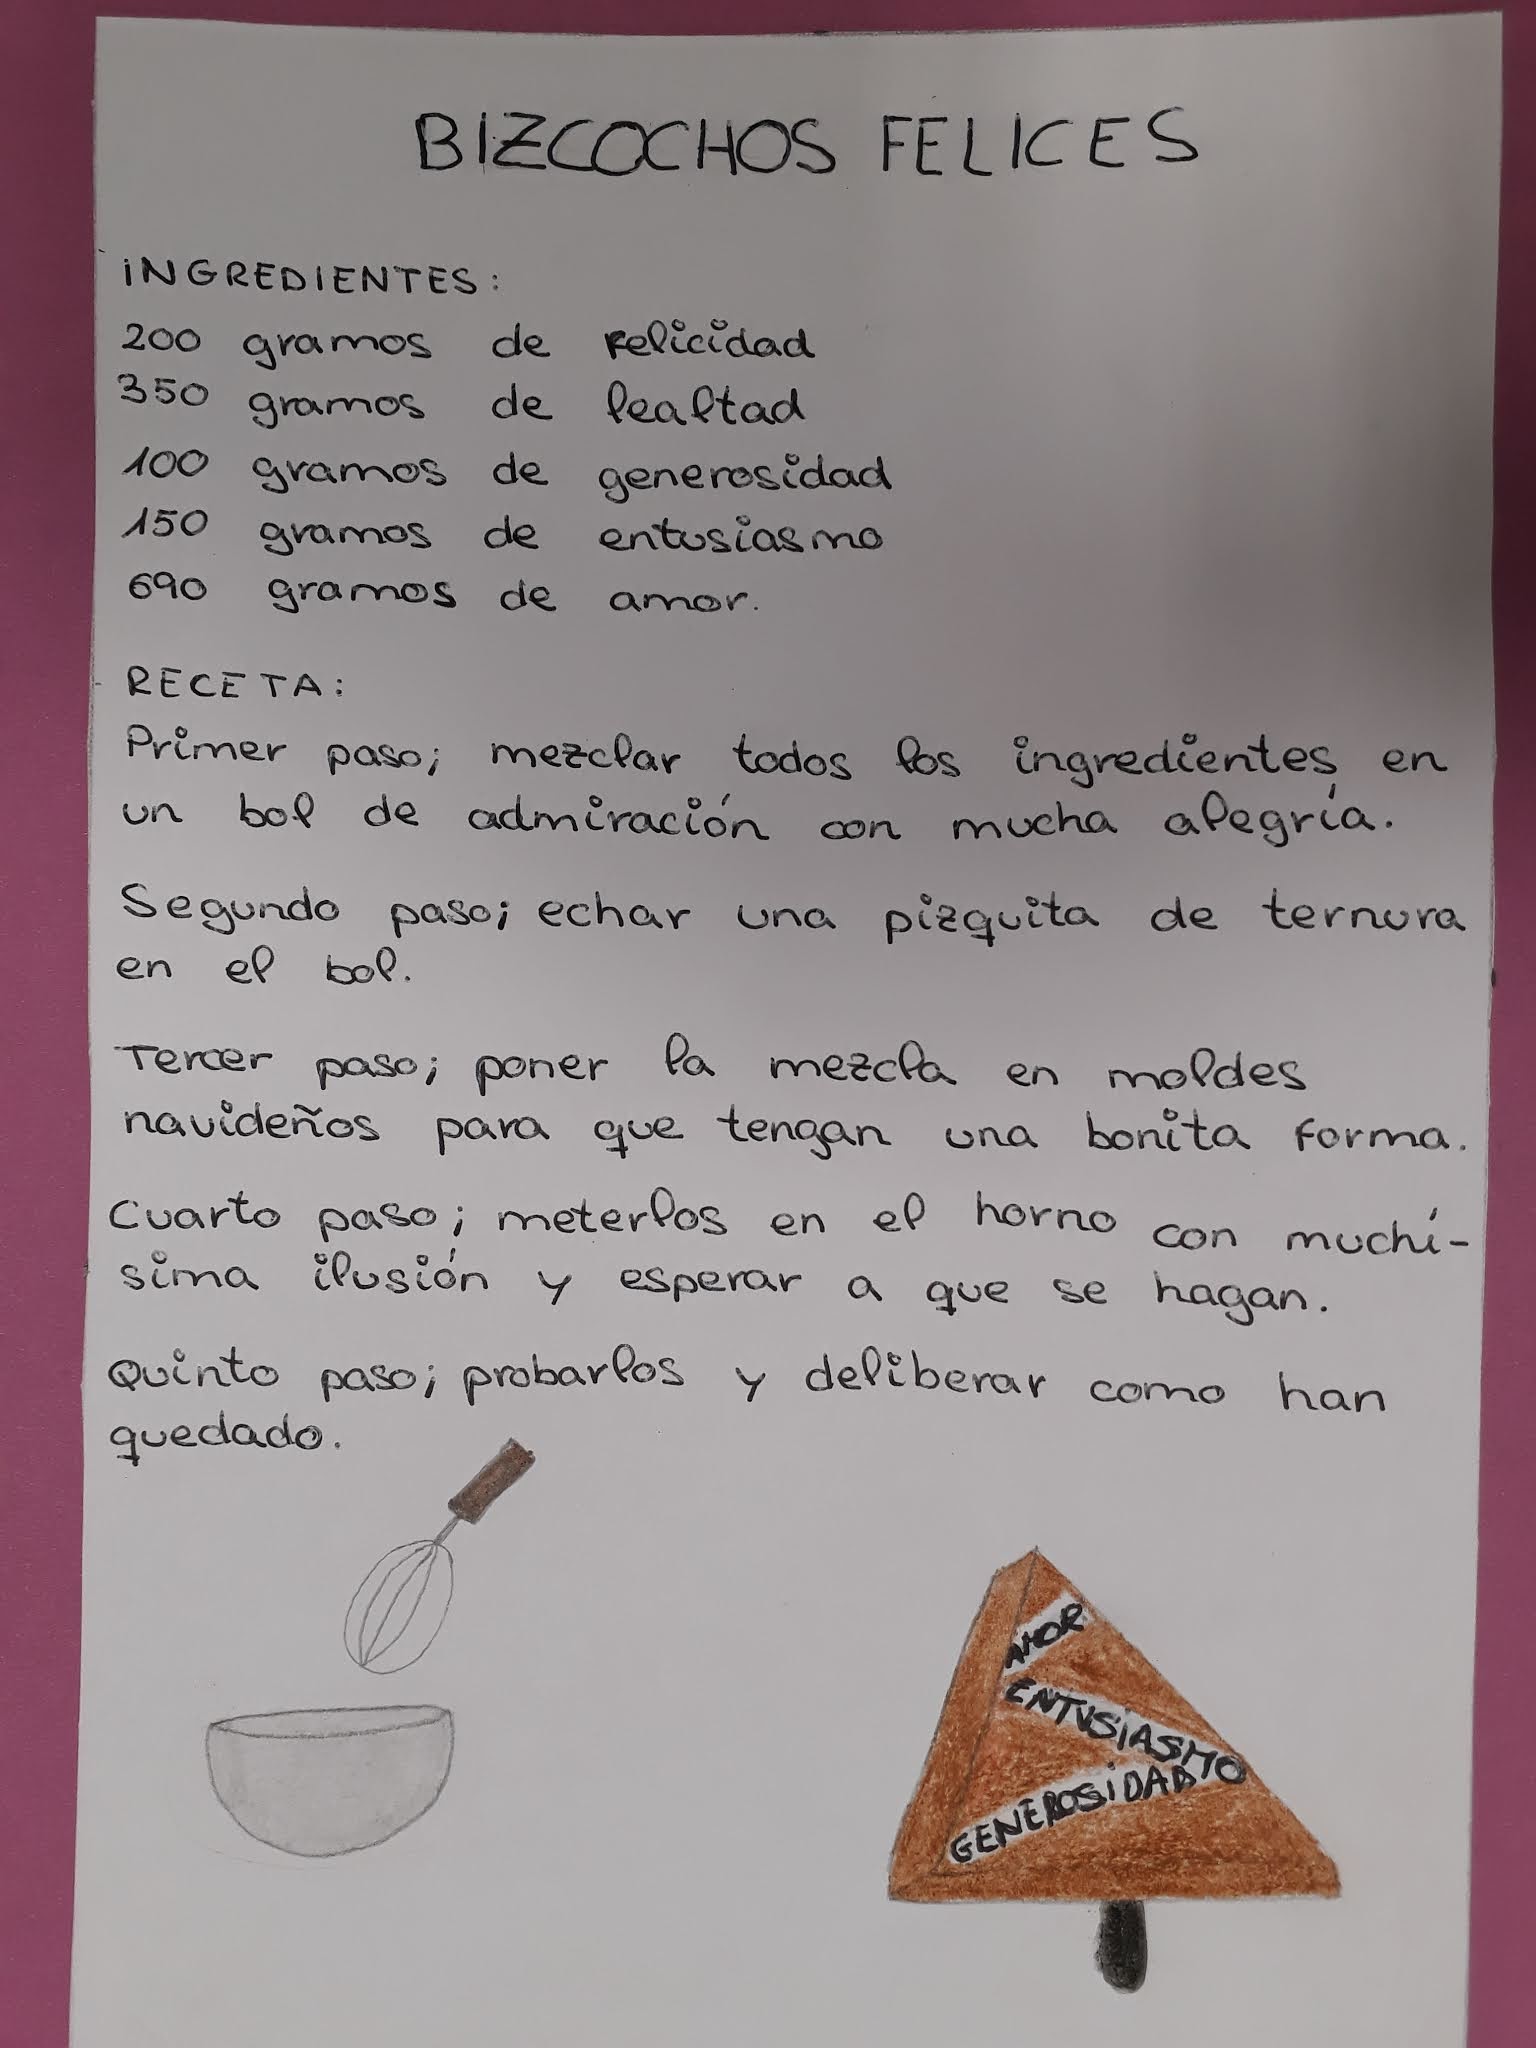 BIZCOCHOS FELICES
INGREDIENTES:
200 gramos de felicidad
350 gramos de lealtad
100 gramos de generosidad
150 gramos de entusiasmo
690 gramos de amor.
RECETA:
Primer paso; mezclar todos los ingredientes en
un bol de admiración con mucha alegría.
Segundo paso; echar una pizquita de ternura
en el bol.
Tercer paso; poner la mezcla en moldes
navideños para que tengan una bonita forma.
Cuarto paso; meterlos en el horno con muchí-
sima ilusión y esperar a que se hagan.
Quinto paso; probarlos y deliberar como han
quedado.
AMOR
ENTUSIASMO
GENEROSIDAD